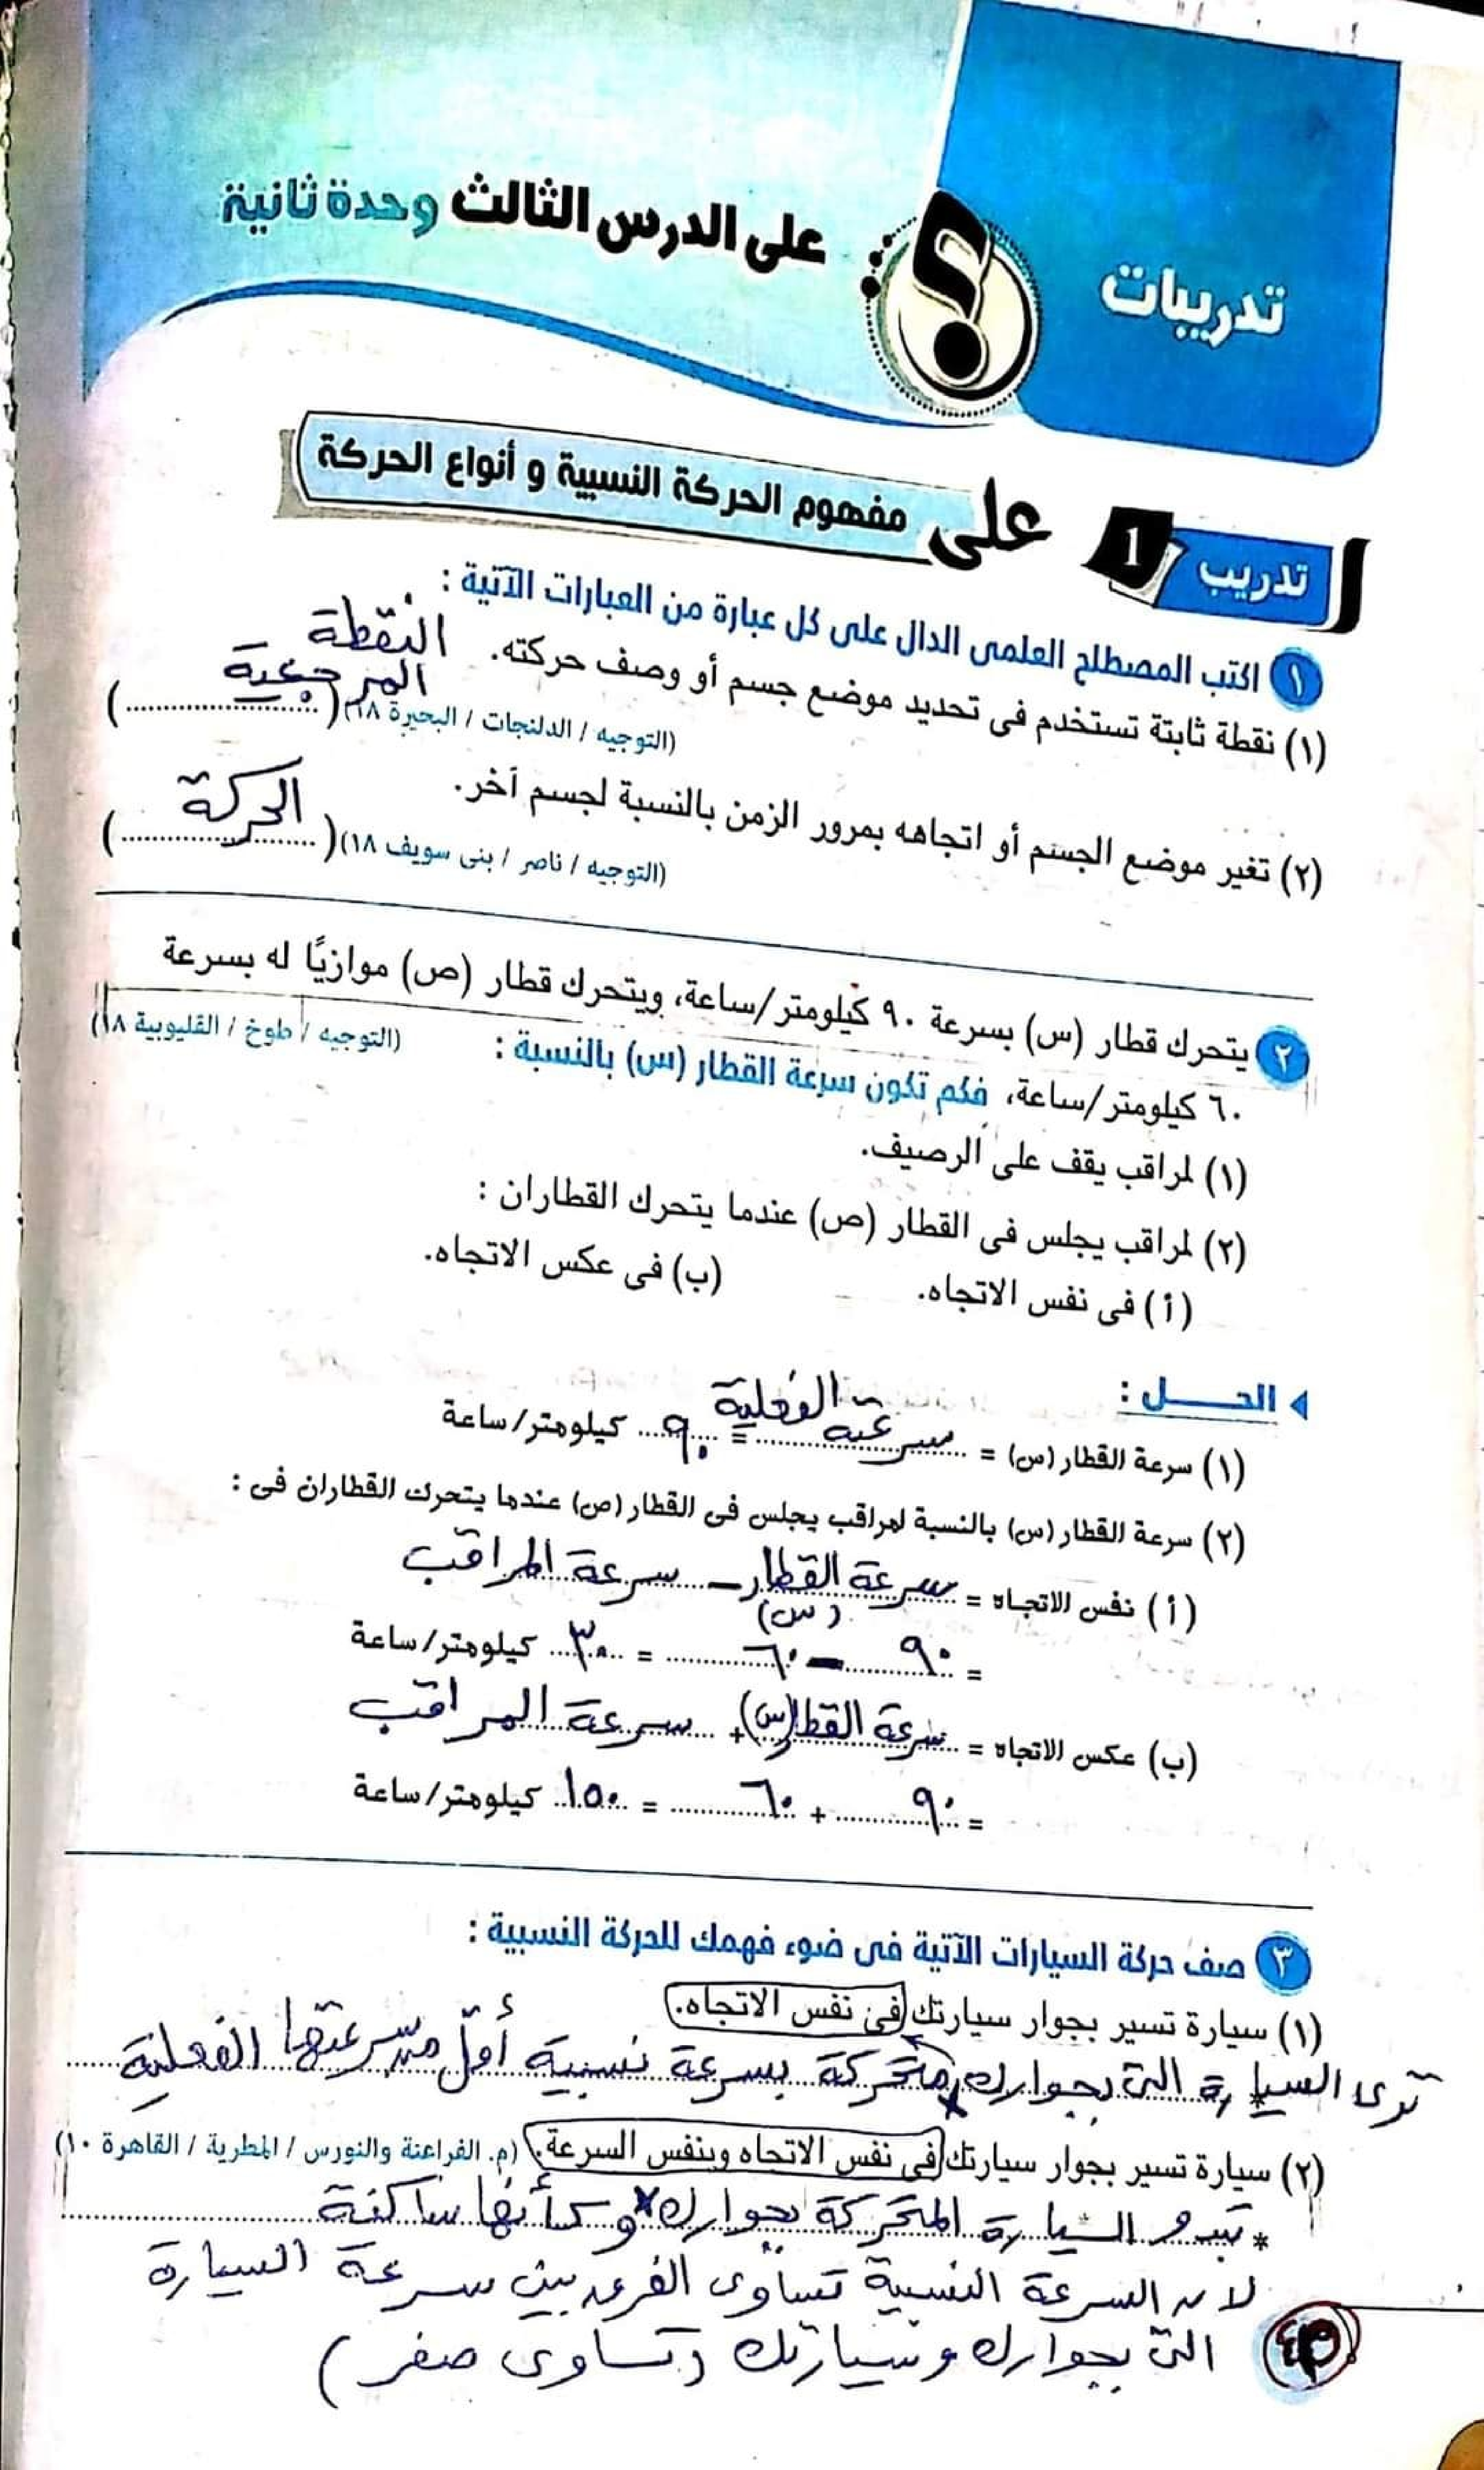 تدريبات
على الدرس الثالث وحدة ثانية
تدريب 1 على مفهوم الحركة النسبية و أنواع الحركة
١ اكتب المصطلح العلمى الدال على كل عبارة من العبارات الآتية :
(١) نقطة ثابتة تستخدم فى تحديد موضع جسم أو وصف حركته. النقطة
(التوجيه / الدلنجات / البحيرة ١٨) (المرجعية)
(٢) تغير موضع الجسم أو اتجاهه بمرور الزمن بالنسبة لجسم آخر.
(التوجيه / ناصر / بنى سويف ١٨) (الحركة)
٢ يتحرك قطار (س) بسرعة ٩٠ كيلومتر/ساعة، ويتحرك قطار (ص) موازيًا له بسرعة
٦٠ كيلومتر/ساعة، فكم تكون سرعة القطار (س) بالنسبة : (التوجيه / طوخ / القليوبية ١٨)
(١) لمراقب يقف على الرصيف.
(٢) لمراقب يجلس فى القطار (ص) عندما يتحرك القطاران :
(أ) فى نفس الاتجاه. (ب) فى عكس الاتجاه.
الحـــــل :
(١) سرعة القطار (س) = سرعته الفعلية = ٩٠ كيلومتر/ساعة
(٢) سرعة القطار (س) بالنسبة لمراقب يجلس فى القطار (ص) عندما يتحرك القطاران فى :
(أ) نفس الاتجاه = سرعة القطار (س) – سرعة المراقب
= ٩٠ – ٦٠ = ٣٠ كيلومتر/ساعة
(ب) عكس الاتجاه = سرعة القطار (س) + سرعة المراقب
= ٩٠ + ٦٠ = ١٥٠ كيلومتر/ساعة
٣ صف حركة السيارات الآتية فى ضوء فهمك للحركة النسبية :
(١) سيارة تسير بجوار سيارتك فى نفس الاتجاه.
ترى السيارة التى بجوارك متحركة بسرعة نسبية أقل من سرعتها الفعلية
(٢) سيارة تسير بجوار سيارتك فى نفس الاتجاه وبنفس السرعة. (م. الفراعنة والنورس / المطرية / القاهرة ١٠)
* تبدو السيارة المتحركة بجوارك وكأنها ساكنة
لان السرعة النسبية تساوى الفرق بين سرعة السيارة
التى بجوارك وسيارتك (تساوى صفر)